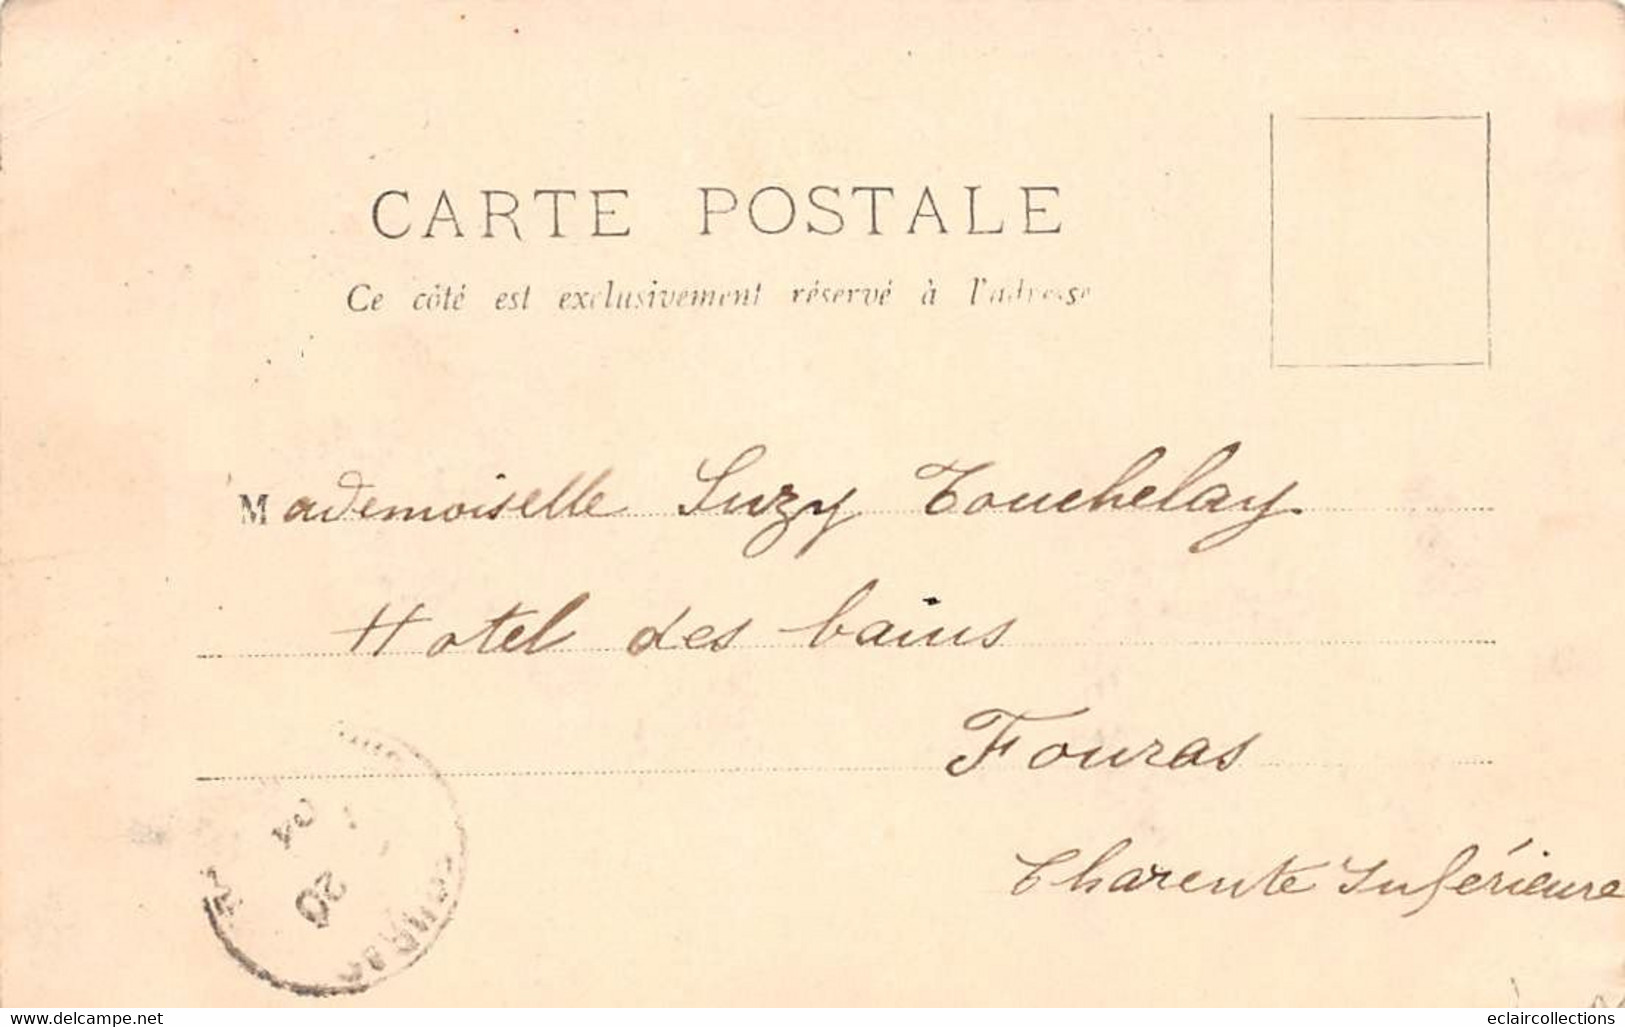 CARTE POSTALE
Ce côté est exclusivement réservé à l'adresse
Mademoiselle Suzy Touchelay
Hotel des bains
Fouras
Charente Inférieure
04
20
www.delcampe.net
eclaircollections